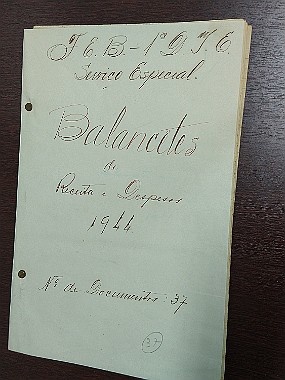 F. E. B - 1ª D. I. E.
Serviço Especial.
Balancetes
de
Receita e Despesa
1944
Nº de Documentos: 37
37